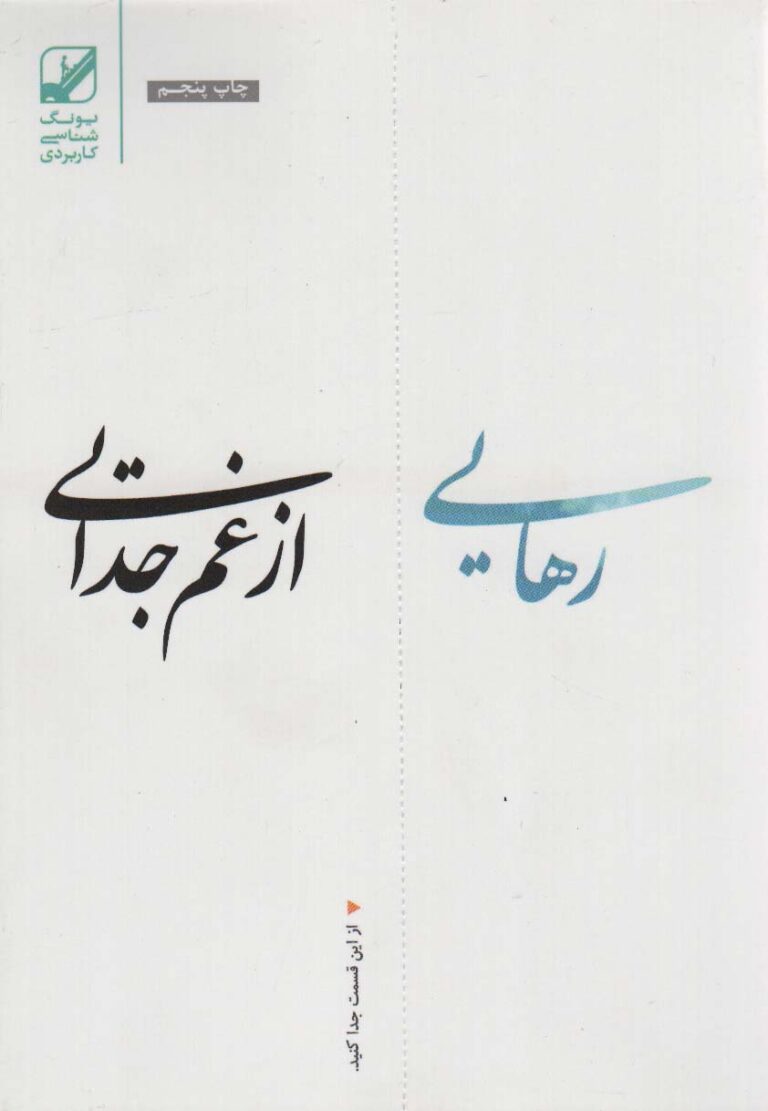 چاپ پنجم
یونگ
شناسی
کاربردی
رهایی
از غم جدایی
از این قسمت جدا کنید.